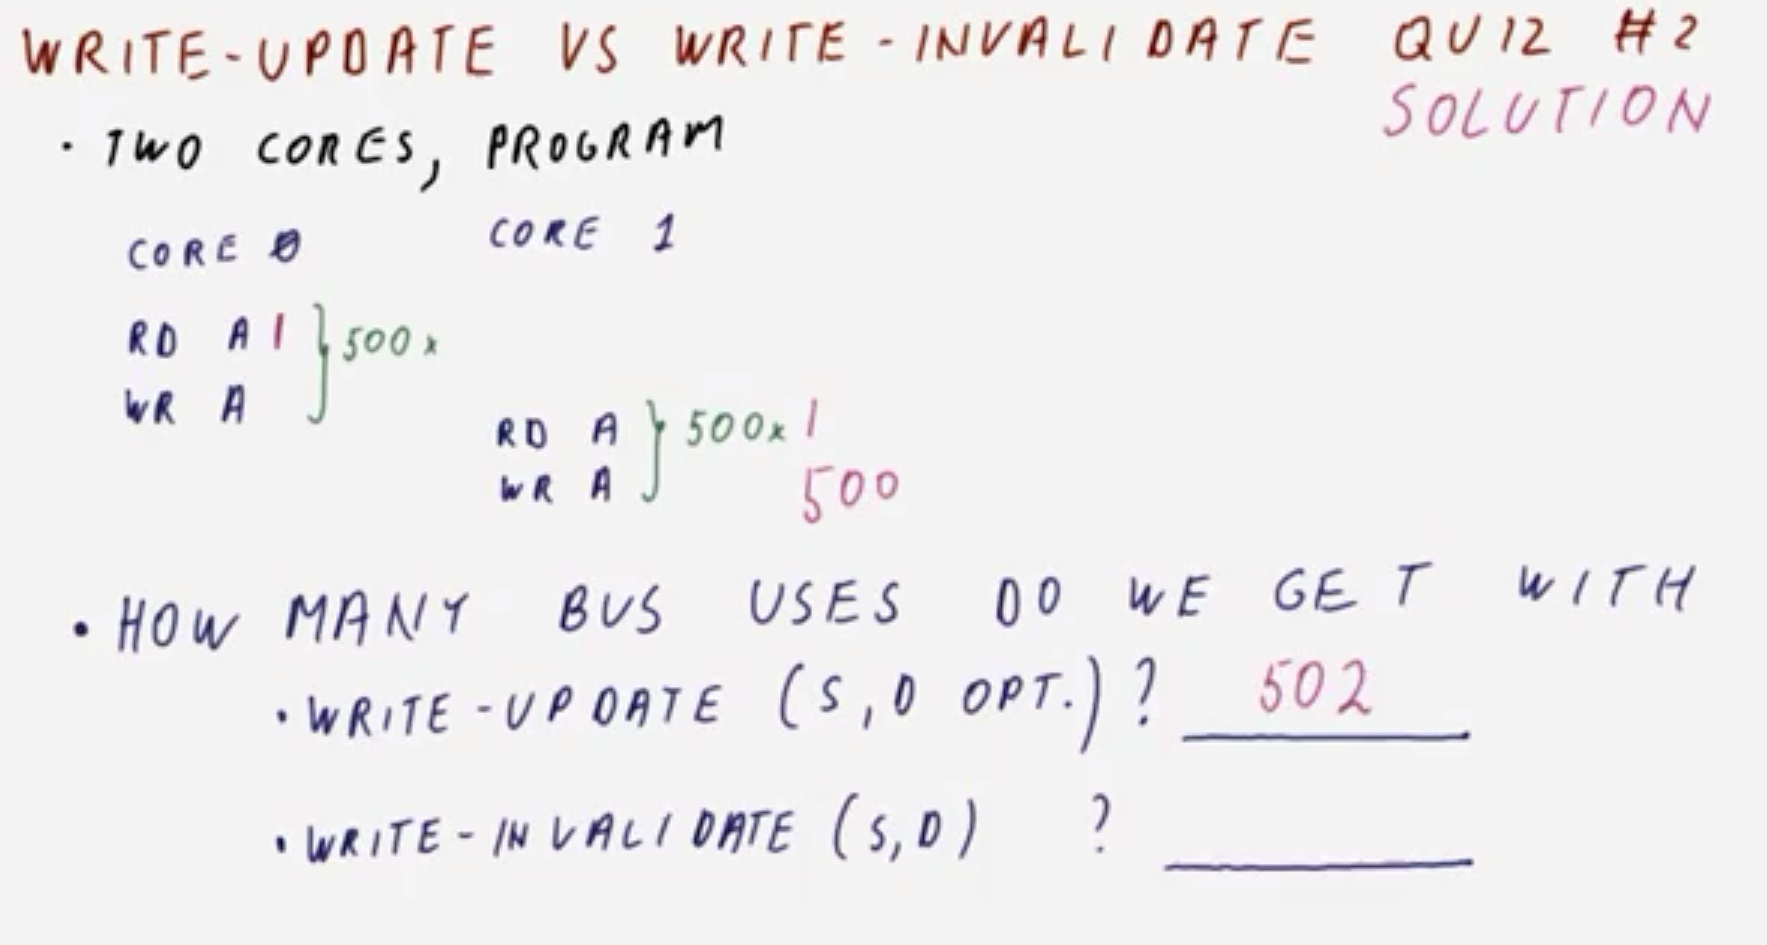 WRITE-UPDATE VS WRITE-INVALIDATE QUIZ #2
SOLUTION
• TWO CORES, PROGRAM
CORE 0 CORE 1
RD A 1 } 500x
WR A
RD A } 500x 1
WR A 500
• HOW MANY BUS USES DO WE GET WITH
• WRITE-UPDATE (S,D OPT.)? 502
• WRITE-INVALIDATE (S,D) ?